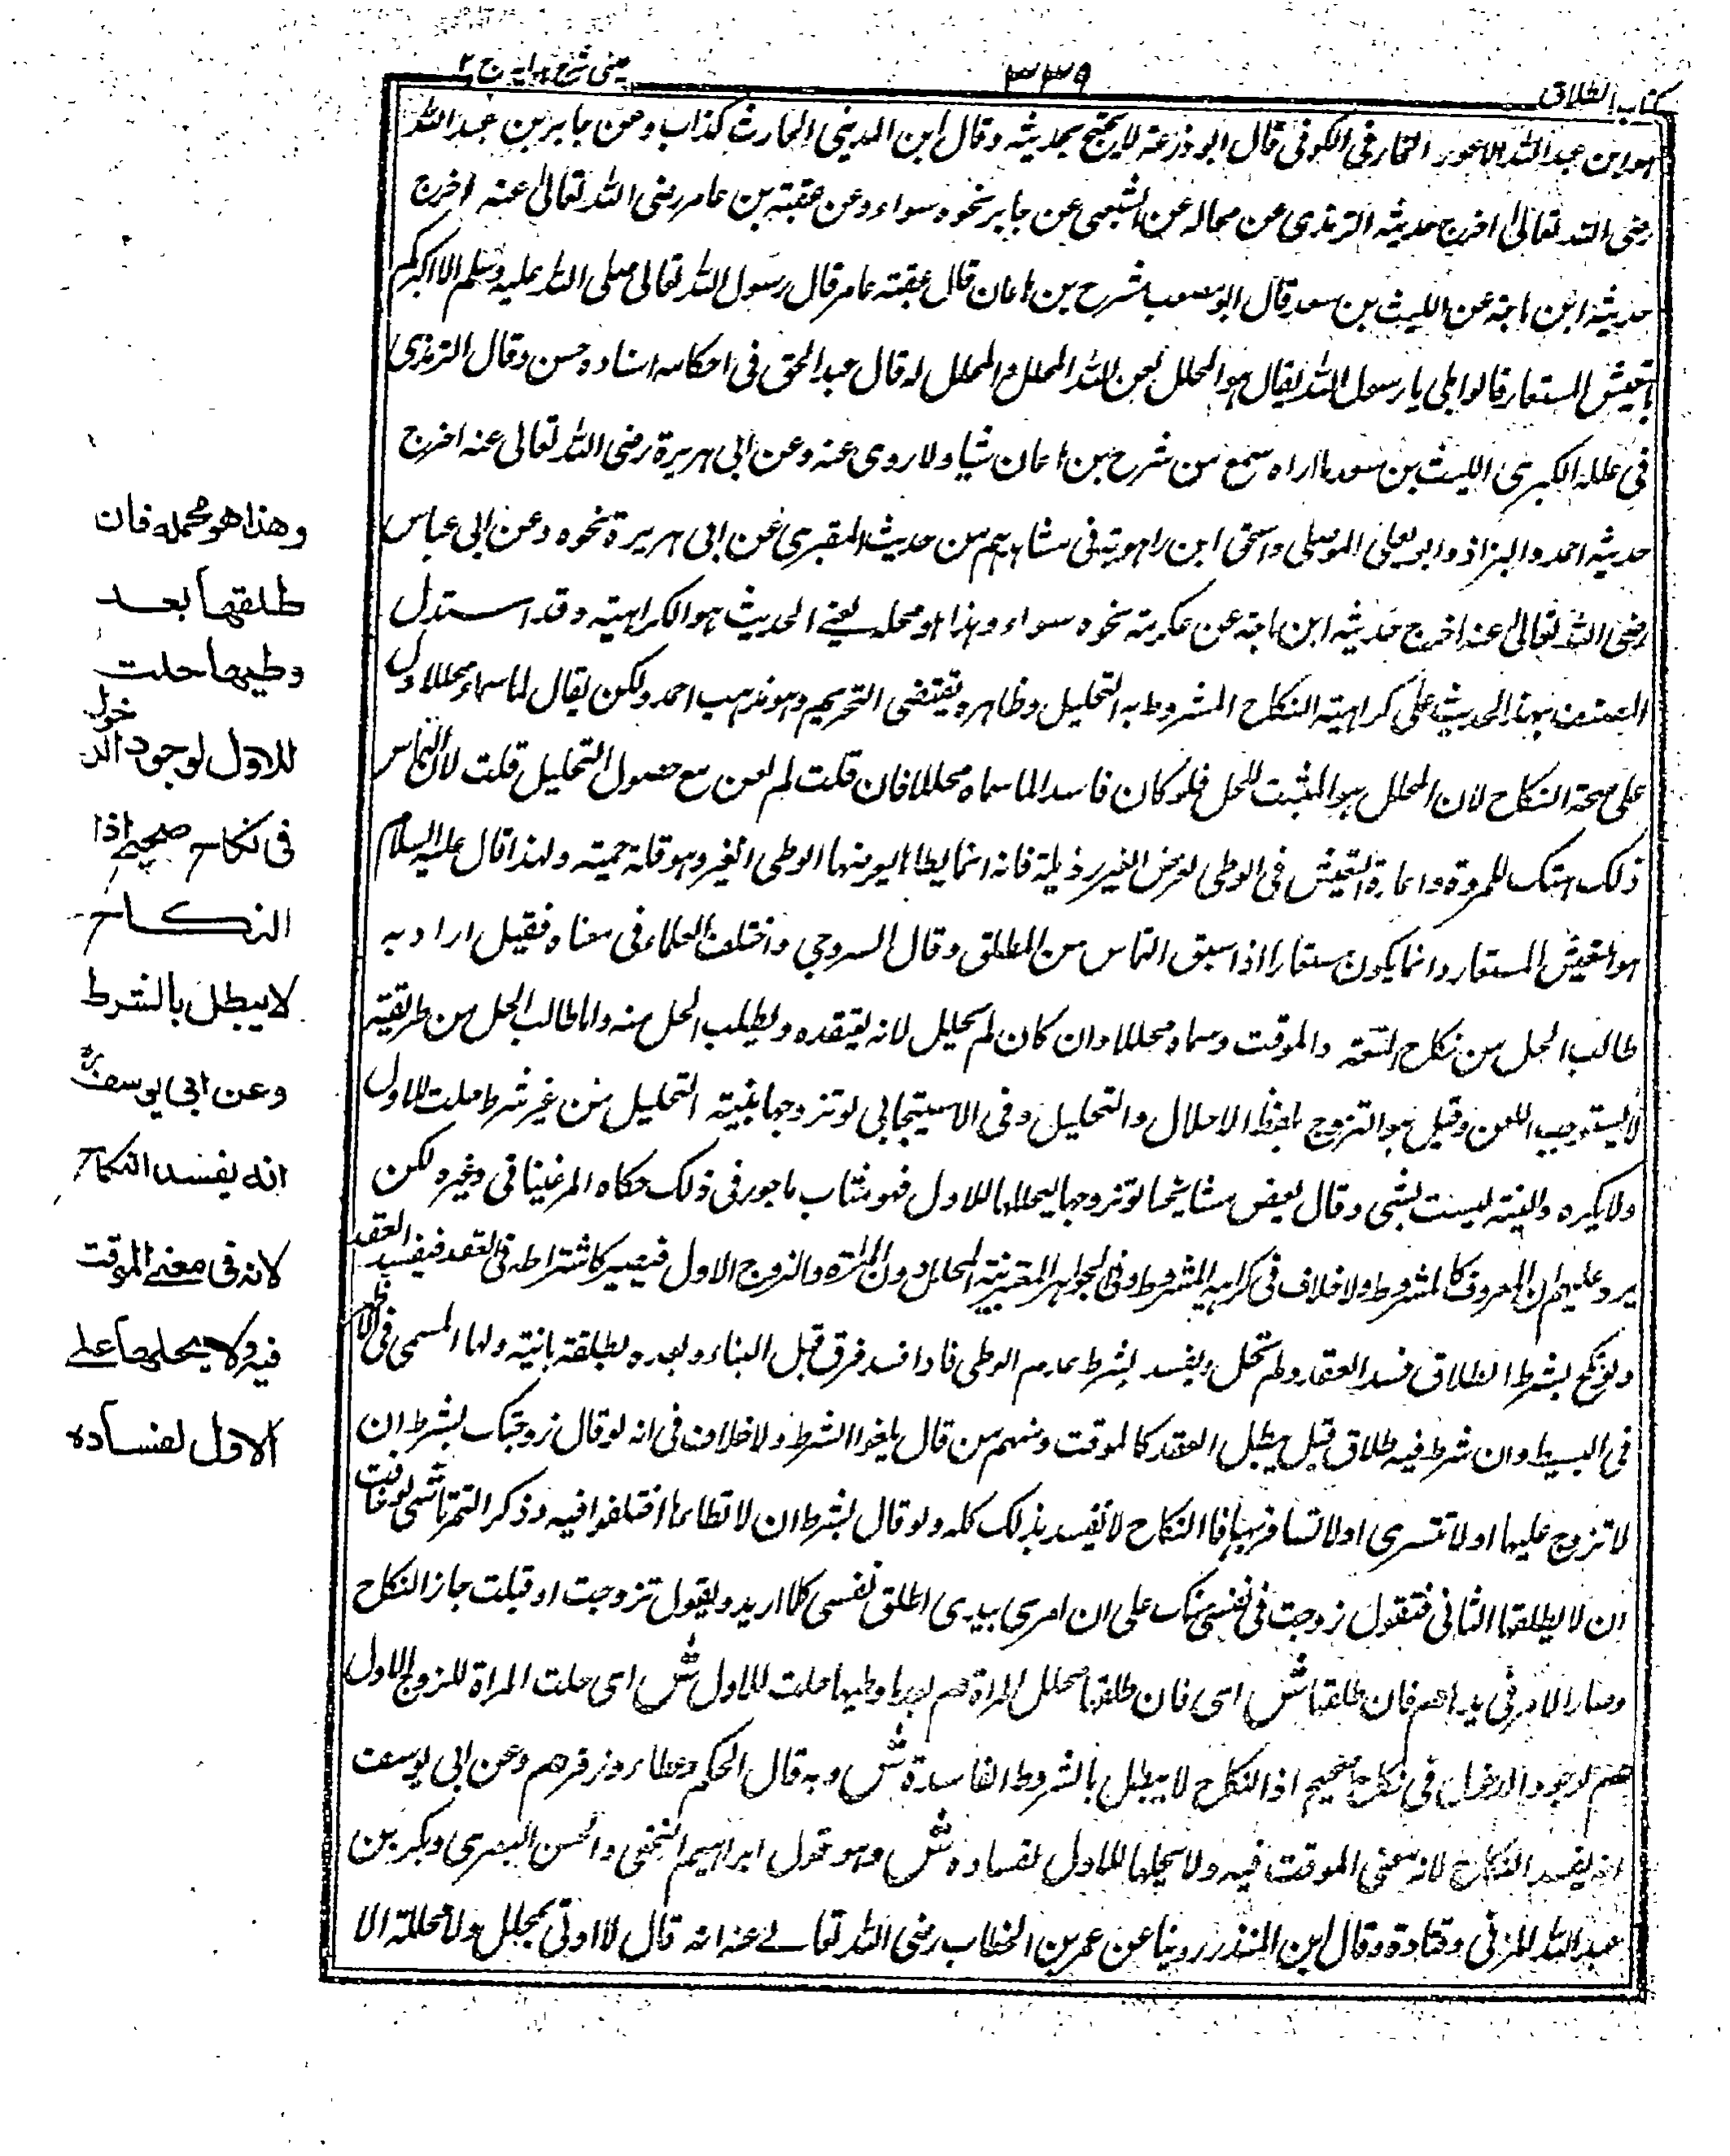 كتاب الطلاق
٣٣٩
عينى شرح هدايه ج ٢
هو ابن عبد الله الاعور الحارفى الكوفى قال ابو زرعة لا يحتج بحديثه وقال ابن المدينى الحارث كذاب وعن جابر بن عبد الله
رضى الله تعالى اخرج حديثه الترمذى عن مجالد عن الشعبى عن جابر نحوه سواء وعن عقبة بن عامر رضى الله تعالى عنه اخرج
حديثه ابن ماجة عن الليث بن سعد قال ابو مصعب مشرح بن هاعان قال عقبة عامر قال رسول الله تعالى صلى الله عليه وسلم الا اخبركم
بالتيس المستعار قالوا بلى يا رسول الله يقال هو المحلل لعن الله المحلل والمحلل له قال عبد الحق فى احكامه اسناده حسن وقال الترمذى
فى علله الكبرى الليث بن سعد ما اراه سمع من مشرح بن هاعان شيا ولا روى عنه وعن ابى هريرة رضى الله تعالى عنه اخرج
حديثه احمد والبزاذ وابو يعلى الموصلى واسحق ابن راهويه فى مسانيدهم من حديث المقبرى عن ابى هريرة نحوه وعن ابى عباس
رضى الله تعالى عنه اخرج حديثه ابن ماجة عن عكرمة نحوه سواء وهذا هو محمله يعنى الحديث هو الكراهية وقد استدل
المصنف بهذا الحديث على كراهية النكاح المشروط به التحليل وظاهره يقتضى التحريم وهو مذهب احمد ولكن يقال لما سماه محللا دل
على صحة النكاح لان المحلل هو المثبت للحل فلو كان فاسدا لما سماه محللا فان قلت لم لعن مع حصول التحليل قلت لان التماس
ذلك هتك للمروة واعارة التيس فى الوطى لغرض الغير رذيلة فانه انما يطاها ليعرضها الوطى الغير وهو قلة حمية ولهذا قال عليه السلام
هو التيس المستعار وانما يكون مستعارا اذا سبق التماس من المطلق وقال السروجى واختلف العلماء فى معناه فقيل اراد به
طالب الحل من نكاح المتعة والموقت وسماه محللا وان كان لم يحلل لانه يعتقده ويطلب الحل منه واما طالب الحل من طريقة
لا يستوجب اللعن وقيل هو التزوج بلفظ الاحلال والتحليل وفى الاسبيجابى لو تزوجها بنية التحليل من غير شرط حلت للاول
ولا يكره والنية ليست بشى وقال بعض مشايخنا لو تزوجها ليحللها للاول فهو مثاب ماجور فى ذلك حكاه المرغينانى وغيره ولكن
يرد عليهم ان المعروف كالمشروط ولا خلاف فى كراهية المشروط وفى الجواهر المعتبر نية المحلل دون المراة والزوج الاول فيصير كاشتراطه فى العقد فيفسد العقد
ولو نكح بشرط الطلاق فسد العقد ولم تحل ويفسد بشرط عدم الوطى فاذا فسد فرق قبل البناء وبعده بطلقة بائنة ولها المسمى فى
فى البسيط وان شرط فيه طلاق قيل يبطل العقد كالموقت ومنهم من قال يلغوا الشرط ولا خلاف فى انه لو قال زوجتك بشرط ان
لا تزوج عليها او لا تتسرى او لا تسافر بها فالنكاح لا يفسد بذلك كله ولو قال بشرط ان لا تطاها اختلفوا فيه وذكر التمرتاشى لو خافت
ان لا يطلقها الثانى فتقول زوجت فى نفسى منك على ان امرى بيدى اطلق نفسى كلما اريد ويقول تزوجت او قبلت جاز النكاح
وصار الامر فى يدها هم فان طلقها ش اى فان طلقها محلل المراة هم بعد ما وطيها حلت للاول ش اى حلت المراة للزوج الاول
هم لوجود الدخول فى نكاح صحيح اذ النكاح لا يبطل بالشروط الفاسدة ش وبه قال الحكم وعطاء وزفر هم وعن ابى يوسف
انه يفسد النكاح لانه بمعنى الموقت فيه ولا يحلها للاول لفساده ش وهو قول ابراهيم النخعى والحسن البصرى وبكر بن
عبد الله المزنى وقتادة وقال ابن المنذر روينا عن عمر بن الخطاب رضى الله تعالى عنه انه قال لا اوتى بمحلل ولا محللة الا
وهذا هو محمله فان
طلقها بعد
وطيها حلت
للاول لوجود الدخول
فى نكاح صحيح اذا
النكاح
لا يبطل بالشرط
وعن ابى يوسف رح
انه يفسد النكاح
لانه فى معنى الموقت
فيه ولا يحلها على
الاول لفساده